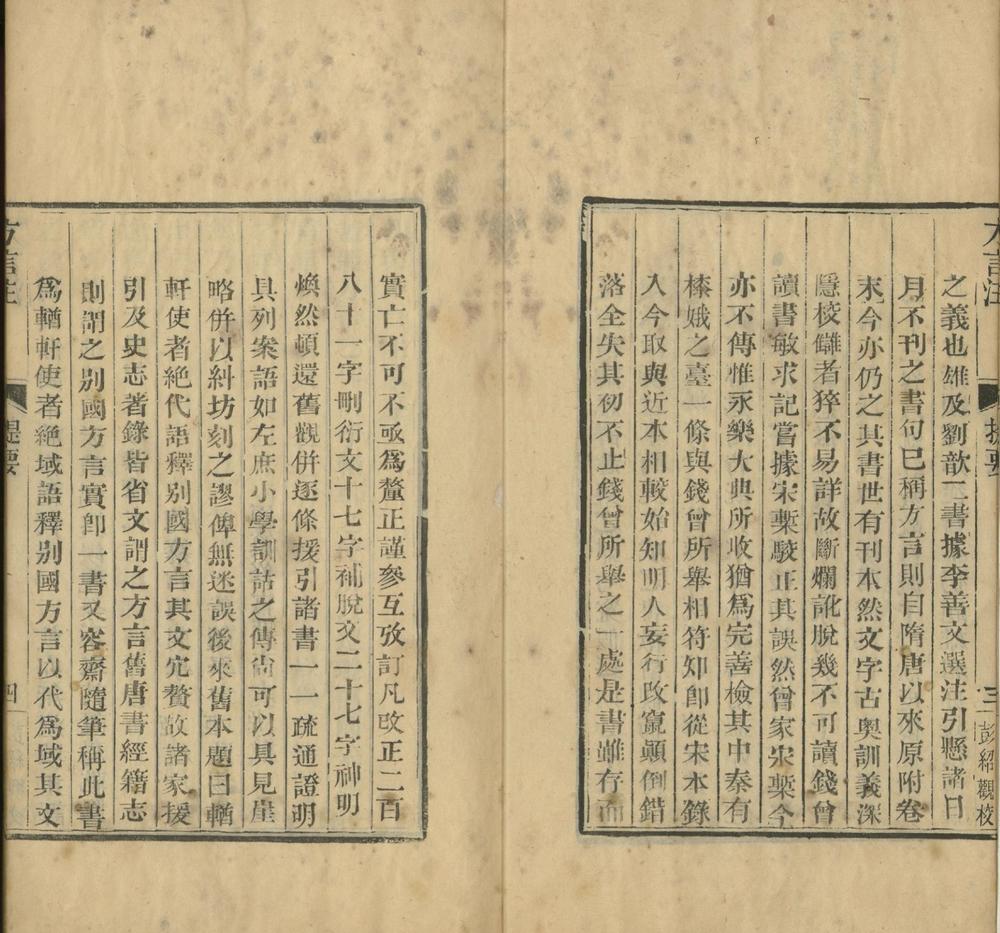 方言注
提要
三
彭紹觀校
之義也雄及劉歆二書據李善文選注引懸諸日
月不刊之書句已稱方言則自隋唐以來原附卷
末今亦仍之其書世有刊本然文字古奧訓義深
隱校讎者猝不易詳故斷爛訛脫幾不可讀錢曾
讀書敏求記嘗據宋槧駁正其誤然曾家宋槧今
亦不傳惟永樂大典所收猶爲完善檢其中秦有
榛娥之臺一條與錢曾所舉相符知卽從宋本錄
入今取與近本相較始知明人妄行改竄顚倒錯
落全失其初不止錢曾所舉之一處是書雖存而
實亡不可不亟爲釐正謹參互攷訂凡改正二百
八十一字刪衍文十七字補脫文二十七字神明
煥然頓還舊觀併逐條援引諸書一一疏通證明
具列案語如左庶小學訓詁之傳尙可以具見崖
略併以糾坊刻之謬俾無迷誤後來舊本題曰輶
軒使者絕代語釋別國方言其文宂贅故諸家援
引及史志著錄皆省文謂之方言舊唐書經籍志
則謂之別國方言實卽一書又容齋隨筆稱此書
爲輶軒使者絕域語釋別國方言以代爲域其文
方言注
提要
四